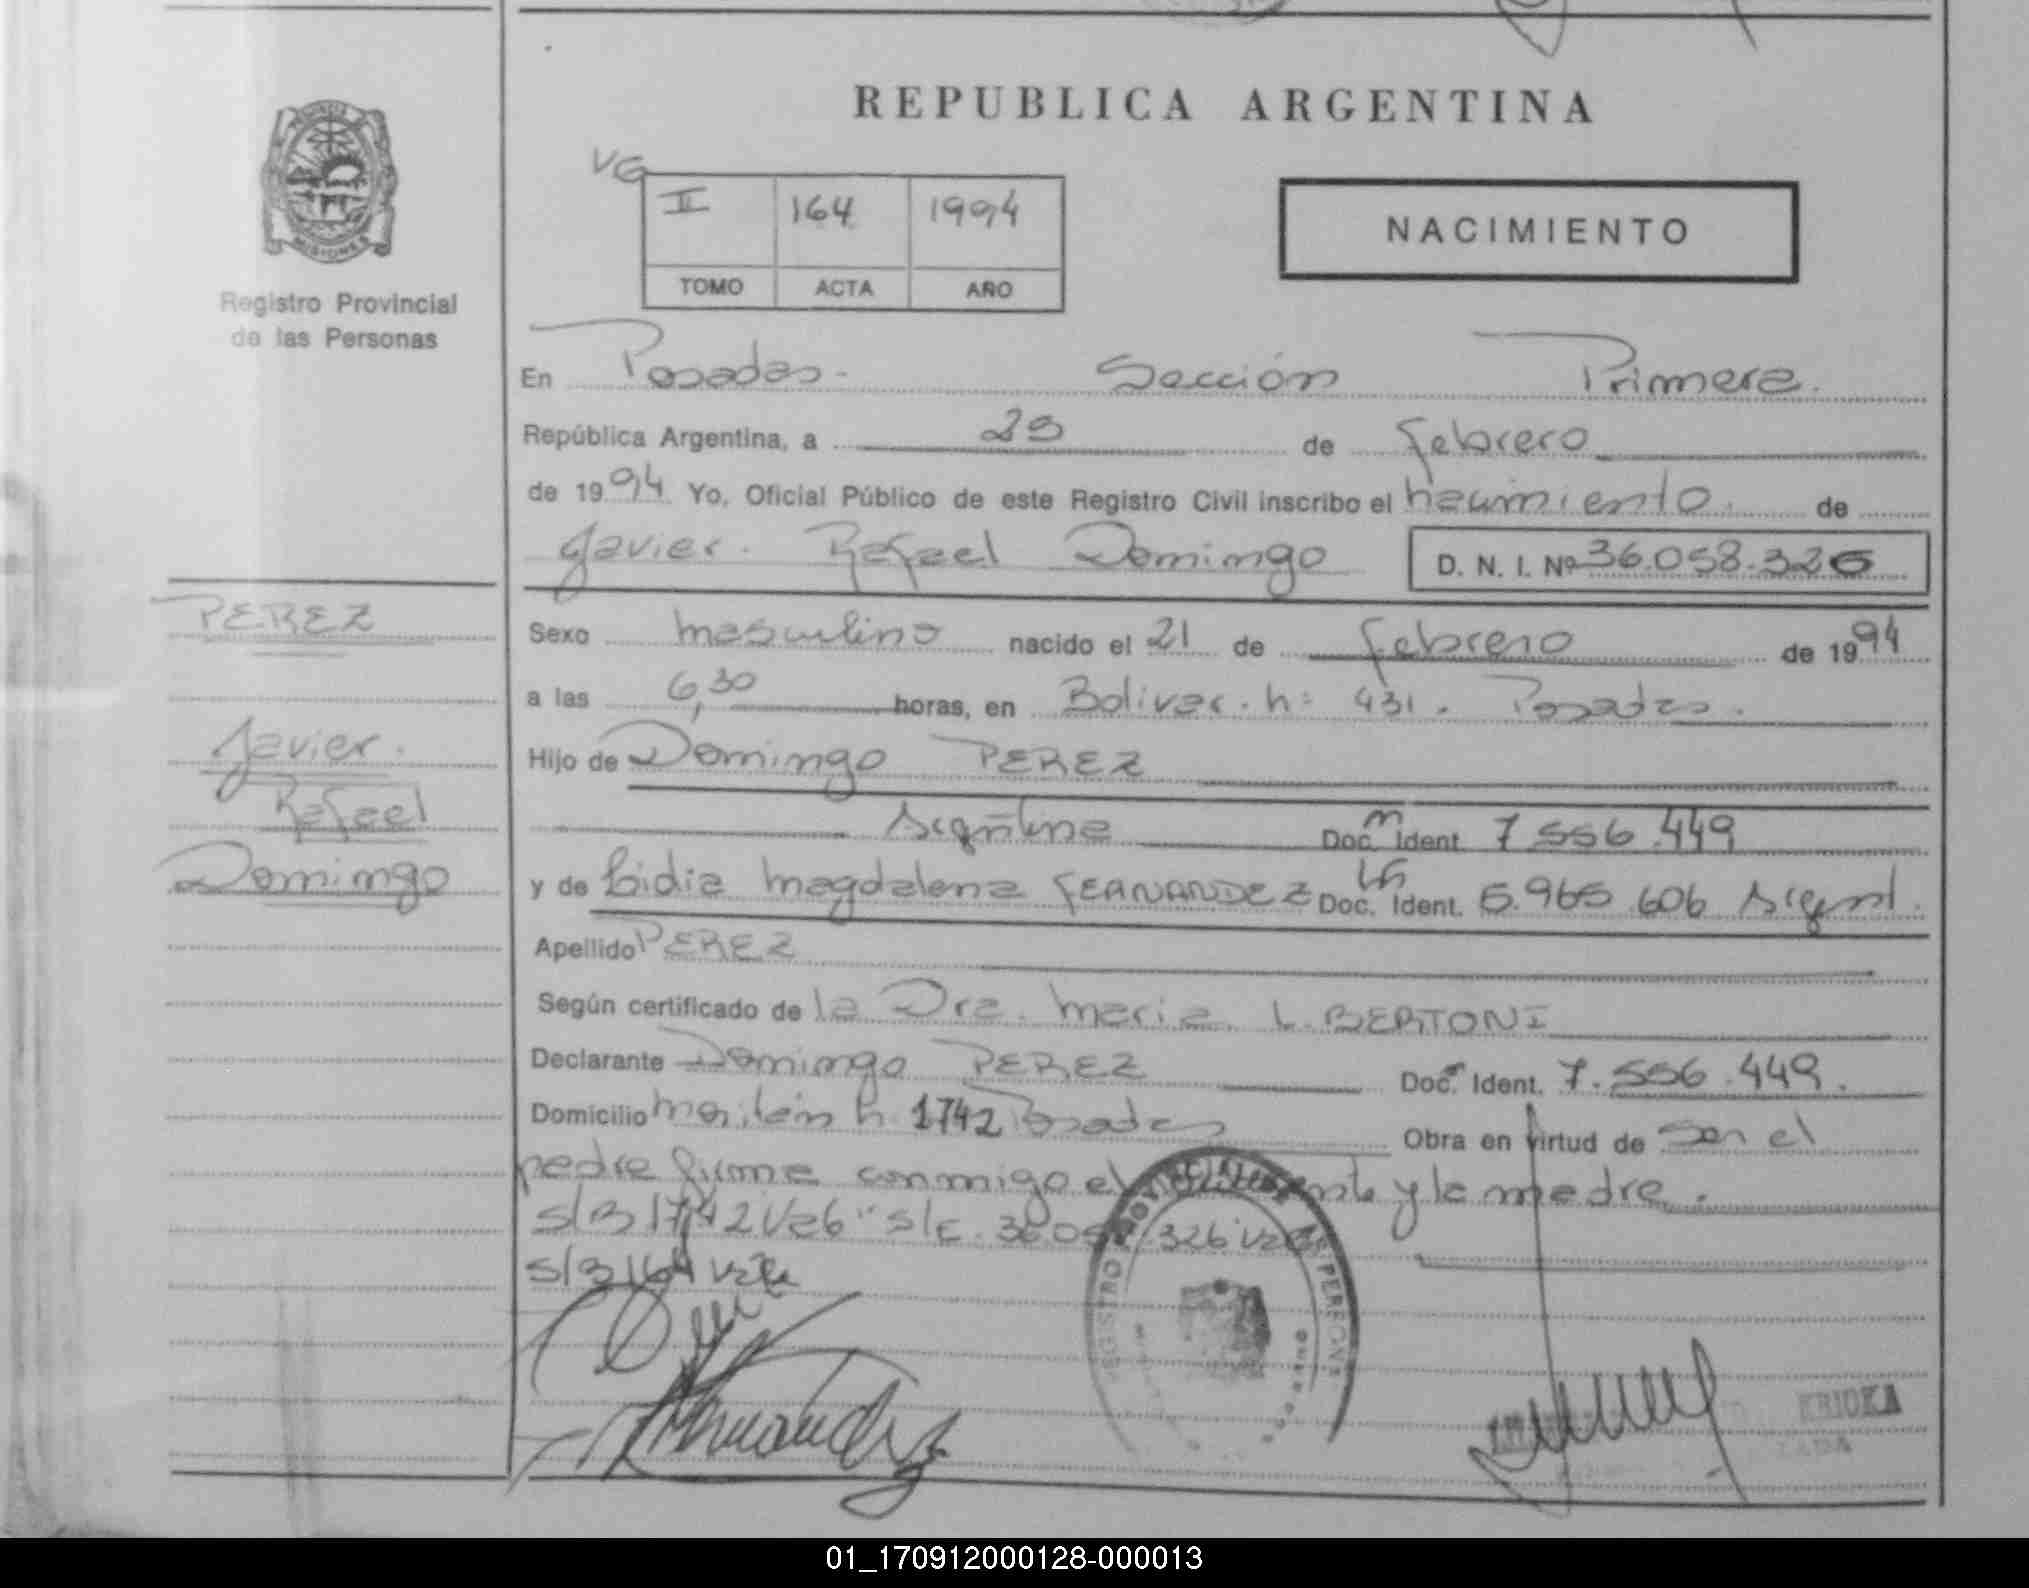 REPUBLICA ARGENTINA
VG
II 164 1994
TOMO ACTA AÑO
NACIMIENTO
MISIONES
Registro Provincial
de las Personas
En Posadas. Sección Primera.
República Argentina, a 23 de Febrero
de 1994 Yo, Oficial Público de este Registro Civil inscribo el nacimiento. de
Javier. Rafael Domingo D. N. I. Nº 36.058.326
PEREZ
Javier.
Rafael
Domingo
Sexo masculino nacido el 21 de Febrero de 1994
a las 6,30 horas, en Bolivar. nº 431. Posadas.
Hijo de Domingo PEREZ
Argentina Doc. Ident. 7.556.449
y de Lidia Magdalena FERNANDEZ Doc. Ident. 5.965.606 Argent.
Apellido PEREZ
Según certificado de la Dra. Maria L. BERTONI
Declarante Domingo PEREZ Doc. Ident. 7.556.449.
Domicilio n 1742 Posadas Obra en virtud de ser el
padre firma conmigo el y la madre.
S/B 1742 Vale S/E 36.058.326 Vale
S/B 164 Vale
Fernández
REGISTRO PERSONAS
KRIOKA
01_170912000128-000013